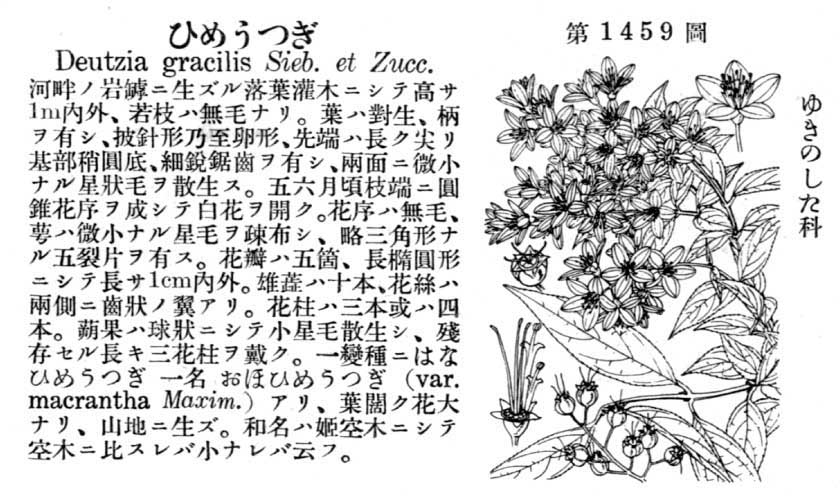 ひめうつぎ
Deutzia gracilis Sieb. et Zucc.
河畔ノ岩罅ニ生ズル落葉灌木ニシテ高サ
1m内外、若枝ハ無毛ナリ。葉ハ對生、柄
ヲ有シ、披針形乃至卵形、先端ハ長ク尖リ
基部稍圓底、細鋭鋸齒ヲ有シ、兩面ニ微小
ナル星狀毛ヲ散生ス。五六月頃枝端ニ圓
錐花序ヲ成シテ白花ヲ開ク。花序ハ無毛、
萼ハ微小ナル星毛ヲ疎布シ、略三角形ナ
ル五裂片ヲ有ス。花瓣ハ五箇、長橢圓形
ニシテ長サ1cm内外。雄蕋ハ十本、花絲ハ
兩側ニ齒狀ノ翼アリ。花柱ハ三本或ハ四
本。蒴果ハ球狀ニシテ小星毛散生シ、殘
存セル長キ三花柱ヲ戴ク。一變種ニはな
ひめうつぎ 一名 おほひめうつぎ (var.
macrantha Maxim.) アリ、葉闊ク花大
ナリ、山地ニ生ズ。和名ハ姬空木ニシテ
空木ニ比スレバ小ナレバ云フ。
第1459圖
ゆきのした科